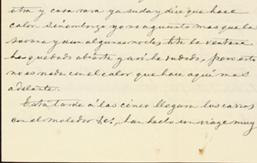 otra y casa nova ya suda y dice que hace
calor. Sin embargo yo no aguanto mas que la
y aun algunas noches la ventana
ha quedado abierta y asi he sudado, pero esto
no es nada en el calor que hace aquí mas
adelante.
Esta tarde a las cinco llegaron los carros
con el molador, han hecho un viaje muy